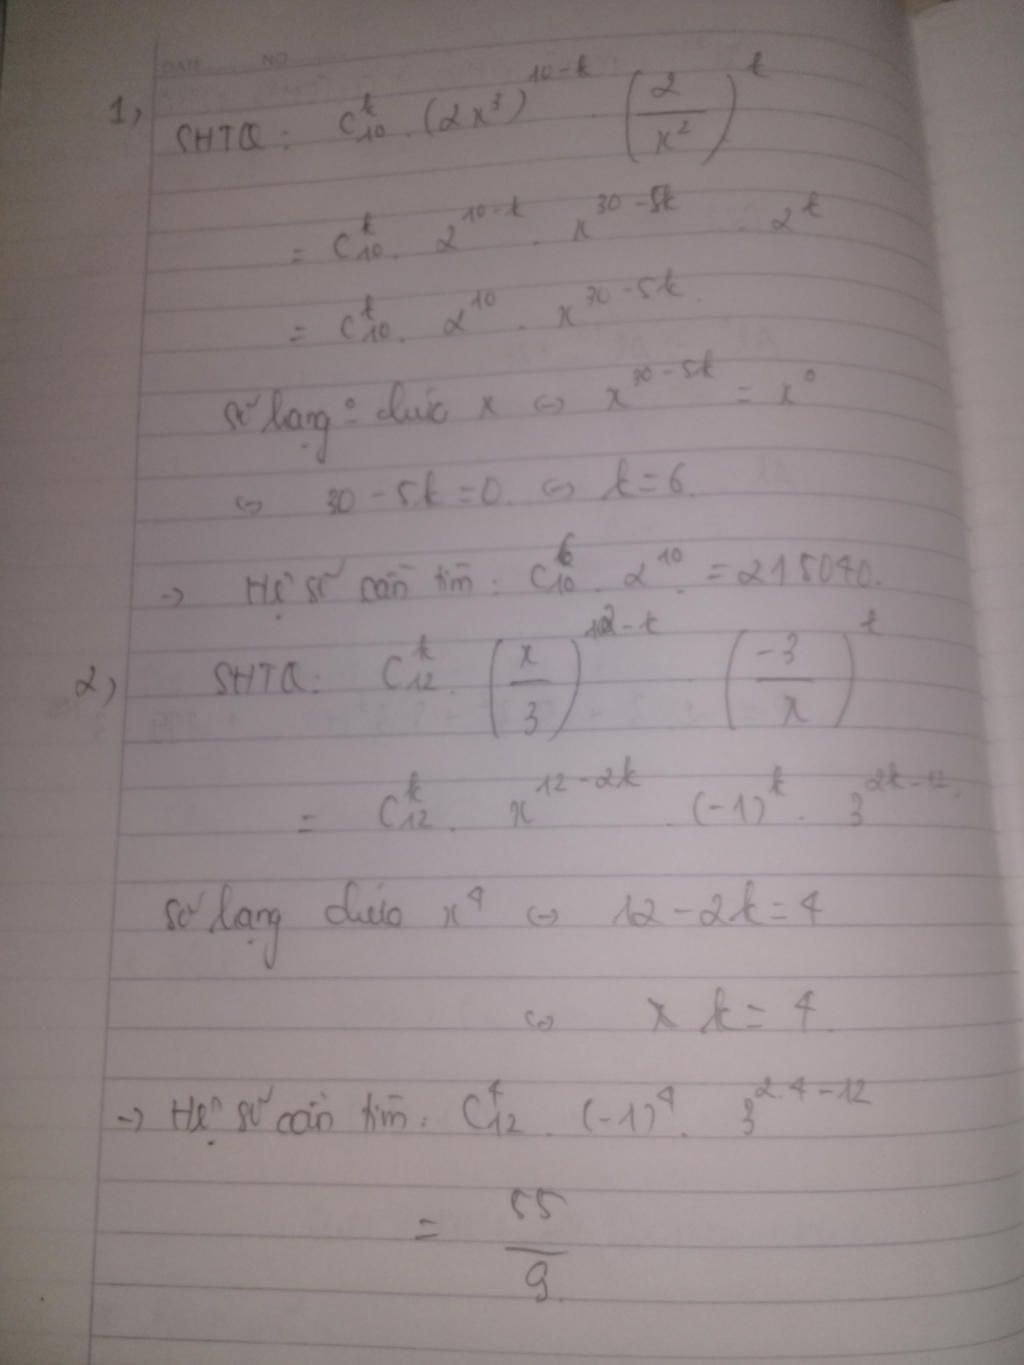 DATE NO
1, SHTQ: C₁₀ᵏ . (2x³)¹⁰⁻ᵏ . (2/x²)ᵏ
= C₁₀ᵏ . 2¹⁰⁻ᵏ . x³⁰⁻⁵ᵏ . 2ᵏ
= C₁₀ᵏ . 2¹⁰ . x³⁰⁻⁵ᵏ.
số hạng ⁰ chứa x ⇔ x³⁰⁻⁵ᵏ = x⁰
⇔ 30 - 5k = 0. ⇔ k = 6.
→ Hệ số cần tìm: C₁₀⁶ . 2¹⁰ = 215040.
2, SHTQ: C₁₂ᵏ . (x/3)¹²⁻ᵏ . (-3/x)ᵏ
= C₁₂ᵏ . x¹²⁻²ᵏ . (-1)ᵏ . 3²ᵏ⁻¹².
số hạng chứa x⁴ ⇔ 12 - 2k = 4
⇔ k = 4.
→ Hệ số cần tìm: C₁₂⁴ . (-1)⁴ . 3²·⁴⁻¹²
= 55/9.